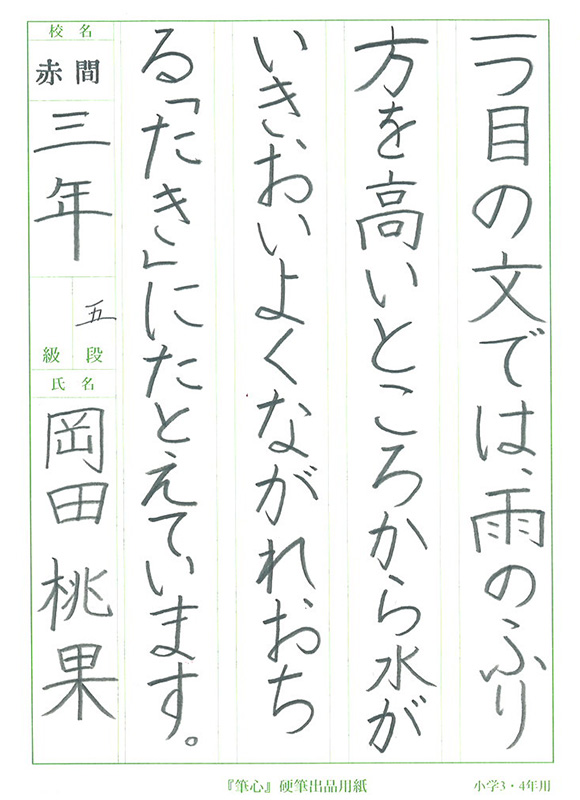 一つ目の文では、雨のふり
方を高いところから水が
いきおいよくながれおち
る「たき」にたとえています。
校名
赤間
三年
五
級段
氏名
岡田桃果
『筆心』硬筆出品用紙
小学3・4年用